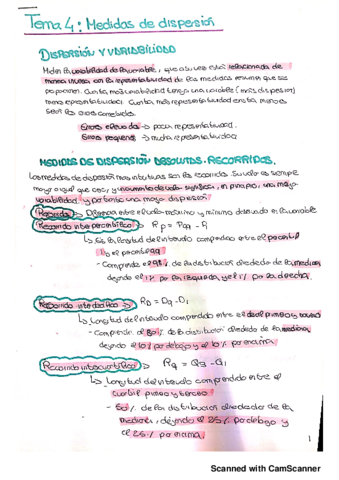 Tema 4: Medidas de dispersión
DISPERSIÓN Y VARIABILIDAD
Miden la variabilidad de la variable, que a su vez está relacionada de
manera inversa con la representatividad de las medidas resumen que se
proponen. Cuanta más variabilidad tenga una variable (más dispersión)
menos representatividad. Cuanta más representatividad exista, menos
serán los errores cometidos.
Errores elevados → poca representatividad.
Errores pequeños → mucha representatividad
MEDIDAS DE DISPERSIÓN ABSOLUTAS. RECORRIDOS.
Las medidas de dispersión más intuitivas son los recorridos. Su valor es siempre
mayor o igual que cero, y un aumento de valor significa, en principio, una mayor
variabilidad y por tanto una mayor dispersión
Recorrido → Diferencia entre el valor máximo y mínimo de la variable
Recorrido intercentílico → Rp = P99 - P1
↳ Es la longitud del intervalo comprendido entre el percentil
1 y el percentil 99
- Comprende el 98% de la distribución alrededor de la mediana,
dejando el 1% por la izquierda y el 1% por la derecha.
Recorrido interdecílico → RD = D9 - D1
↳ Longitud del intervalo comprendido entre el decil primero y noveno
- Comprende el 80% de la distribución alrededor de la mediana,
dejando el 10% por debajo y el 10% por encima
Recorrido intercuartílico → RQ = Q3 - Q1
↳ Longitud del intervalo comprendido entre el
cuartil primero y tercero
- 50% de la distribución alrededor de la
mediana, dejando el 25% por debajo y
el 25% por encima.
1
Scanned with CamScanner